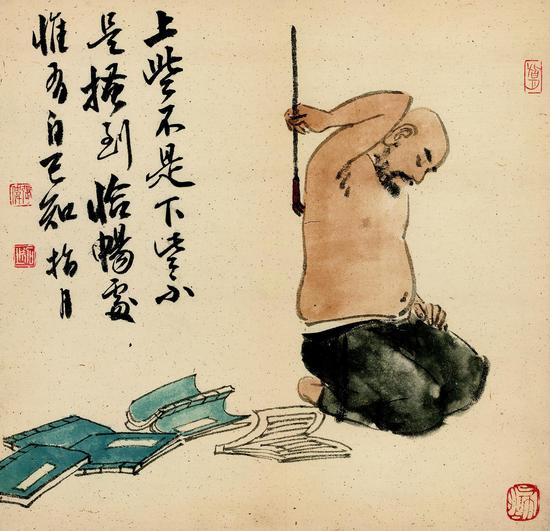 上些不是下些不
是搔到恰暢處
惟有自己知 指月